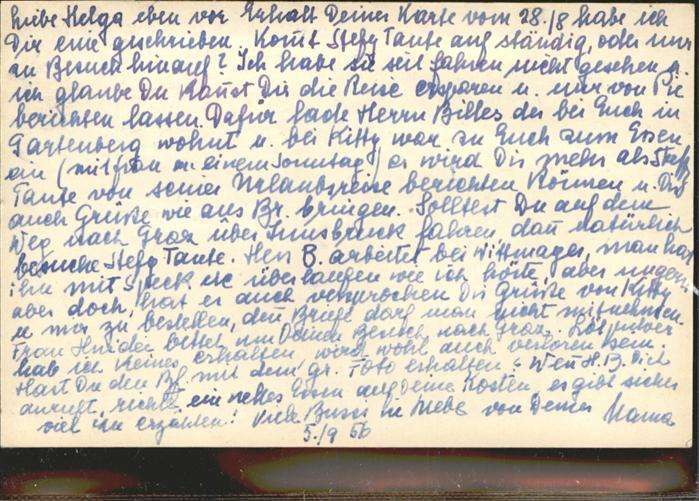 Liebe Helga eben vor Erhalt Deiner Karte vom 28./8 habe ich
Dir eine geschrieben. Komt Steffy Tante auf ständig, oder nur
zu Besuch hinauf? Ich habe sie seit Jahren nicht gesehen u.
ich glaube Du kanst Dir die Reise ersparen u. nur von
berichten lassen. Dafür lade Herrn Billes der bei Euch in
Gartenberg wohnt u. bei Kitty war zu Euch zum Essen
ein (mit Frau an einem Sonntag) er wird Dir mehr als Steffy
Tante von seiner Urlaubsreise berichten können u. Dir
auch Grüße wie aus Br. bringen. Solltest Du auf dem
Weg nach Graz über Innsbruck fahren dan natürlich
besuche Steffy Tante. Herr B. arbeitet bei Wittmayer, man hat
ihn mit Speck etc überladen wie ich hörte, aber ungern
aber doch, hat er auch versprochen Dir Grüße von Kitty
u mir zu bestellen, den Briefe darf man nicht mitnehmen.
Frau Hnider bittet um Deinen Besuch nach Graz.
hab ich keines erhalten wird wohl auch verloren sein.
Hast Du den Bf. mit dem gr. Foto erhalten? Wen H. B. Dich
anruft, richte ein nettes Essen auf Deine Kosten, es gibt sicher
viel zu erzählen! Viele Bussi in Liebe von Deiner Mama
5./9 66